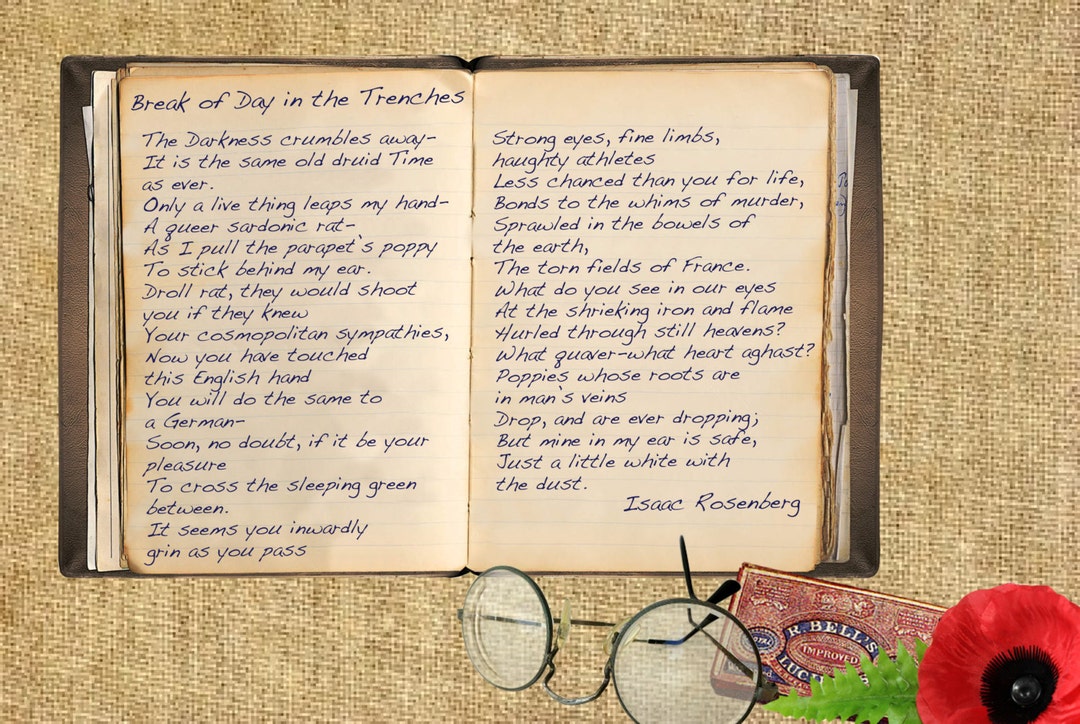 Break of Day in the Trenches
The Darkness crumbles away-
It is the same old druid Time
as ever.
Only a live thing leaps my hand-
A queer sardonic rat-
As I pull the parapet's poppy
To stick behind my ear.
Droll rat, they would shoot
you if they knew
Your cosmopolitan sympathies,
Now you have touched
this English hand
You will do the same to
a German-
Soon, no doubt, if it be your
pleasure
To cross the sleeping green
between.
It seems you inwardly
grin as you pass
Strong eyes, fine limbs,
haughty athletes
Less chanced than you for life,
Bonds to the whims of murder,
Sprawled in the bowels of
the earth,
The torn fields of France.
What do you see in our eyes
At the shrieking iron and flame
Hurled through still heavens?
What quaver-what heart aghast?
Poppies whose roots are
in man's veins
Drop, and are ever dropping;
But mine in my ear is safe,
Just a little white with
the dust.
Isaac Rosenberg
R. BELL'S
IMPROVED